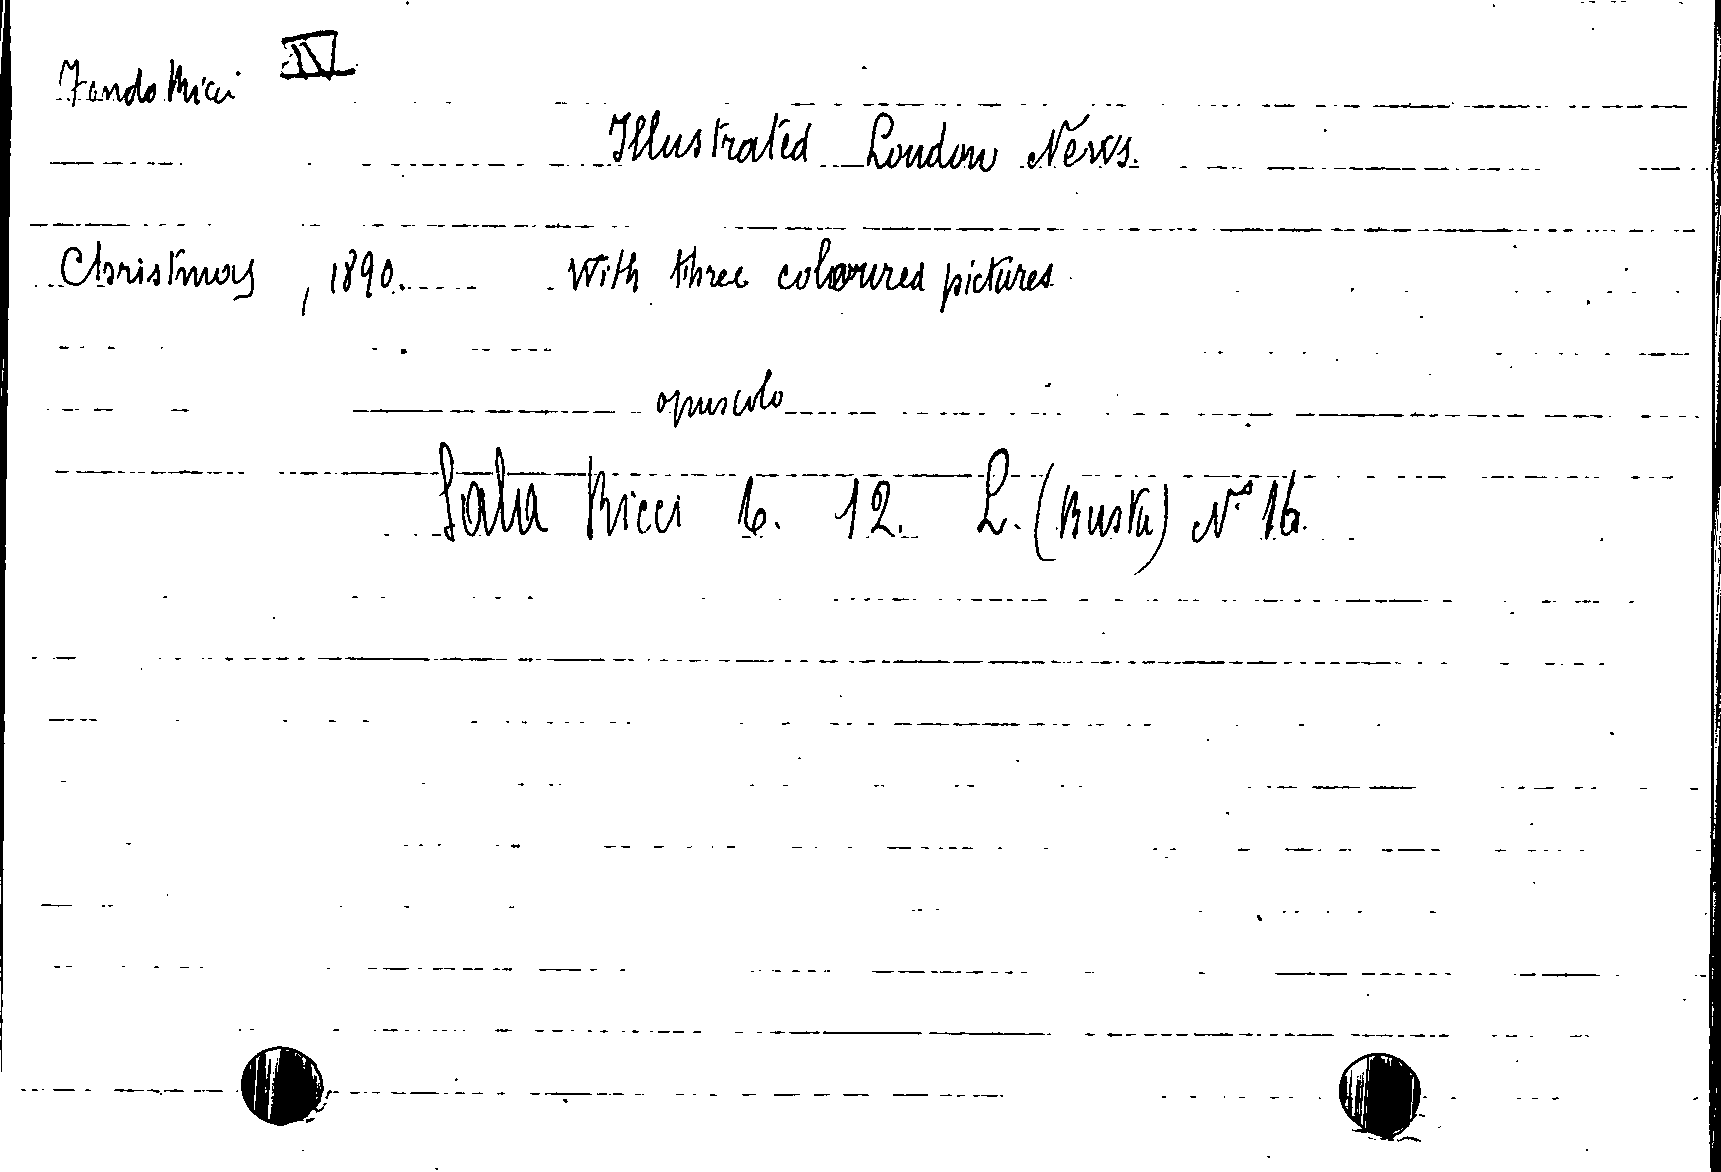 Fondo Ricci IV
Illustrated London News.
Christmas, 1890. With three coloured pictures
opuscolo
Sala Ricci 6. 12. L. (Busta) N° 16.